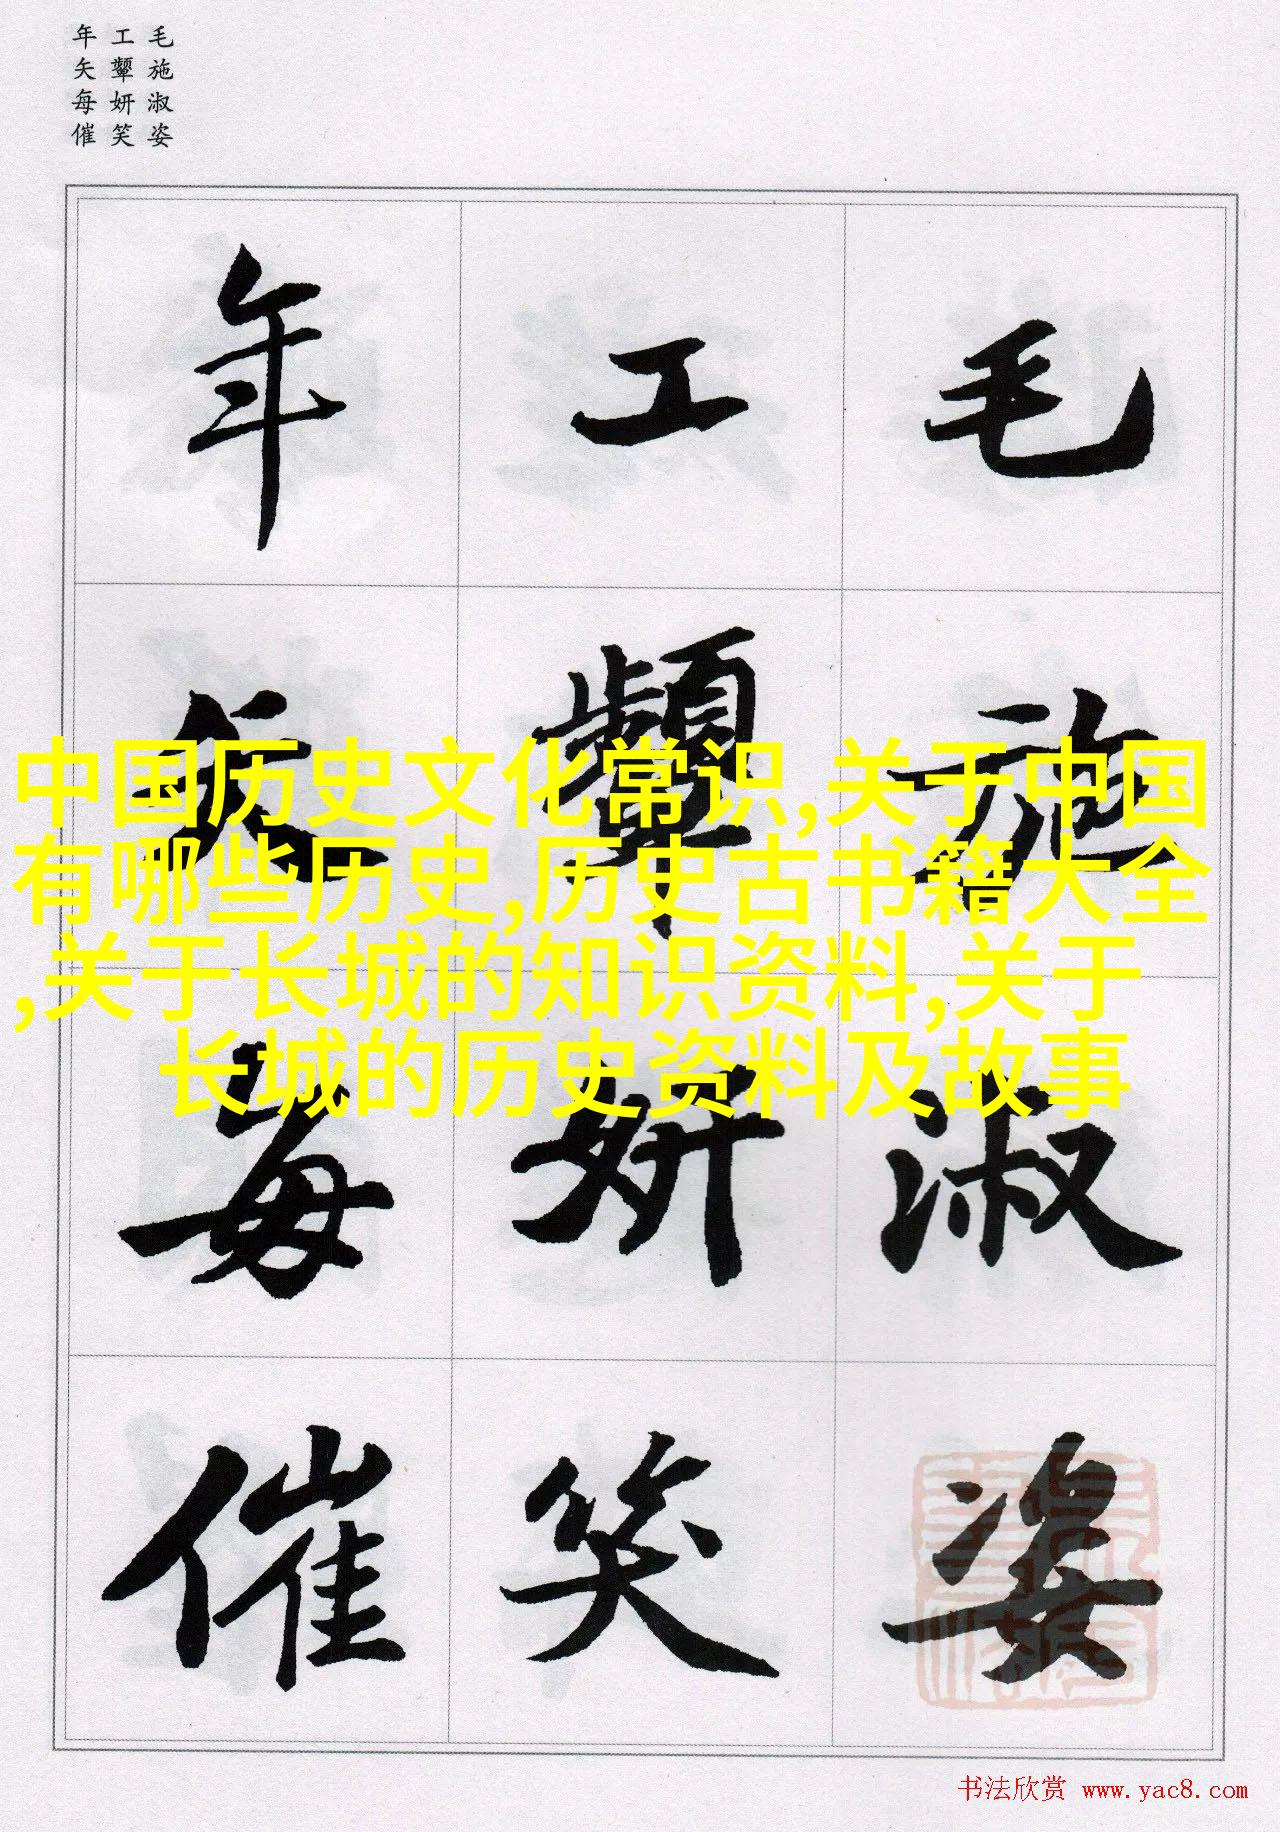 毛施淑姿
工颦妍笑
年矢每催
毛施淑姿
工颦妍笑
年矢每催
中国历史文化常识,关于中国
有哪些历史,历史古书籍大全
,关于长城的知识资料,关于
长城的历史资料及故事
书法欣赏 www.yac8.com